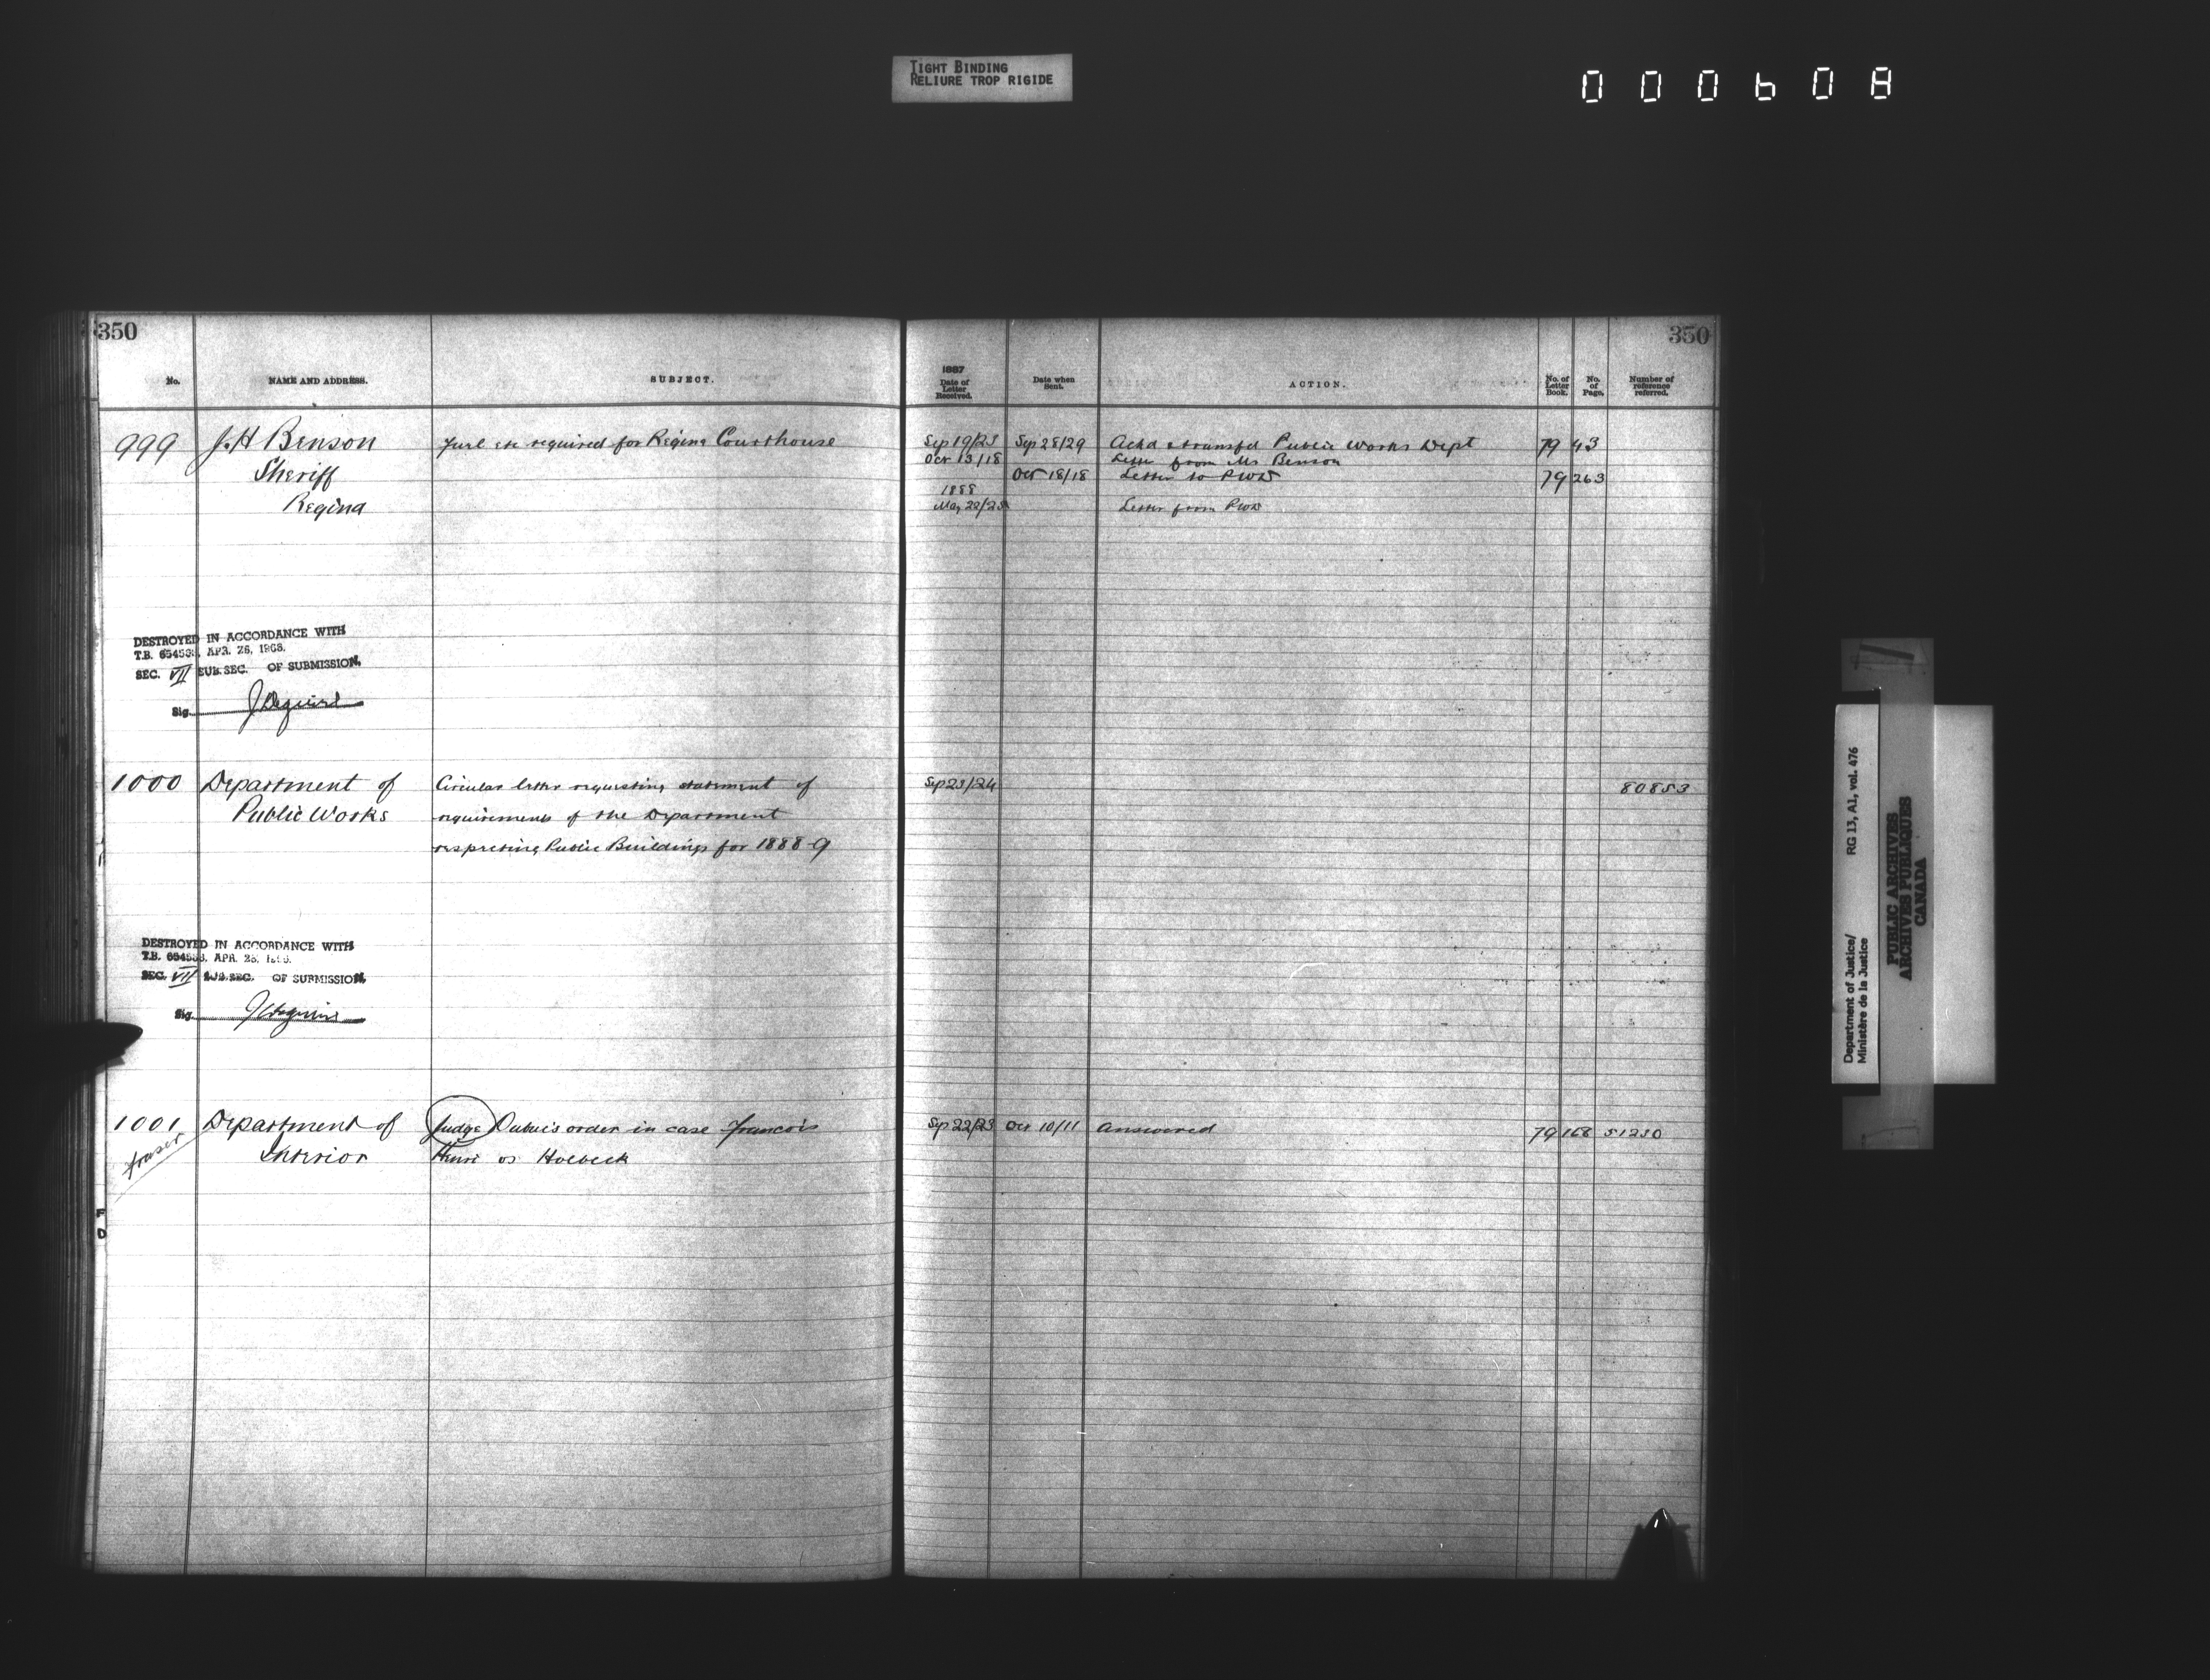 TIGHT BINDING
RELIURE TROP RIGIDE
000608
350
350
No. NAME AND ADDRESS. SUBJECT. 1887 Date of Letter Received. Date when Sent. ACTION. No. of Letter Book. No. of Page. Number of reference referred.
999 J. H Benson Fuel etc required for Regina Courthouse Sep 19/23 Sep 28/29 Ackd & transfd Public Works Dept 79 43
Oct 13/18 Letter from Mr Benson
Sheriff Oct 18/18 Letter to PWD 79 263
1888
Regina May 22/23 Letter from PWD
DESTROYED IN ACCORDANCE WITH
T.B. 654538, APR. 26, 1966.
SEC. VII SUB. SEC. OF SUBMISSION.
Sig.
1000 Department of Circular letter requesting statement of Sep 23/24 80853
Public Works requirements of the Department
respecting Public Buildings for 1888-9
DESTROYED IN ACCORDANCE WITH
T.B. 654538, APR. 26, 1966.
SEC. VII SUB. SEC. OF SUBMISSION.
Sig.
1001 Department of Judge Dubuc's order in case Francois Sep 22/23 Oct 10/11 Answered 79 168 51230
Fraser Interior Henri vs Holbeck
F
D
Department of Justice/ RG 13, A1, vol. 476
Ministère de la Justice
PUBLIC ARCHIVES
ARCHIVES PUBLIQUES
CANADA